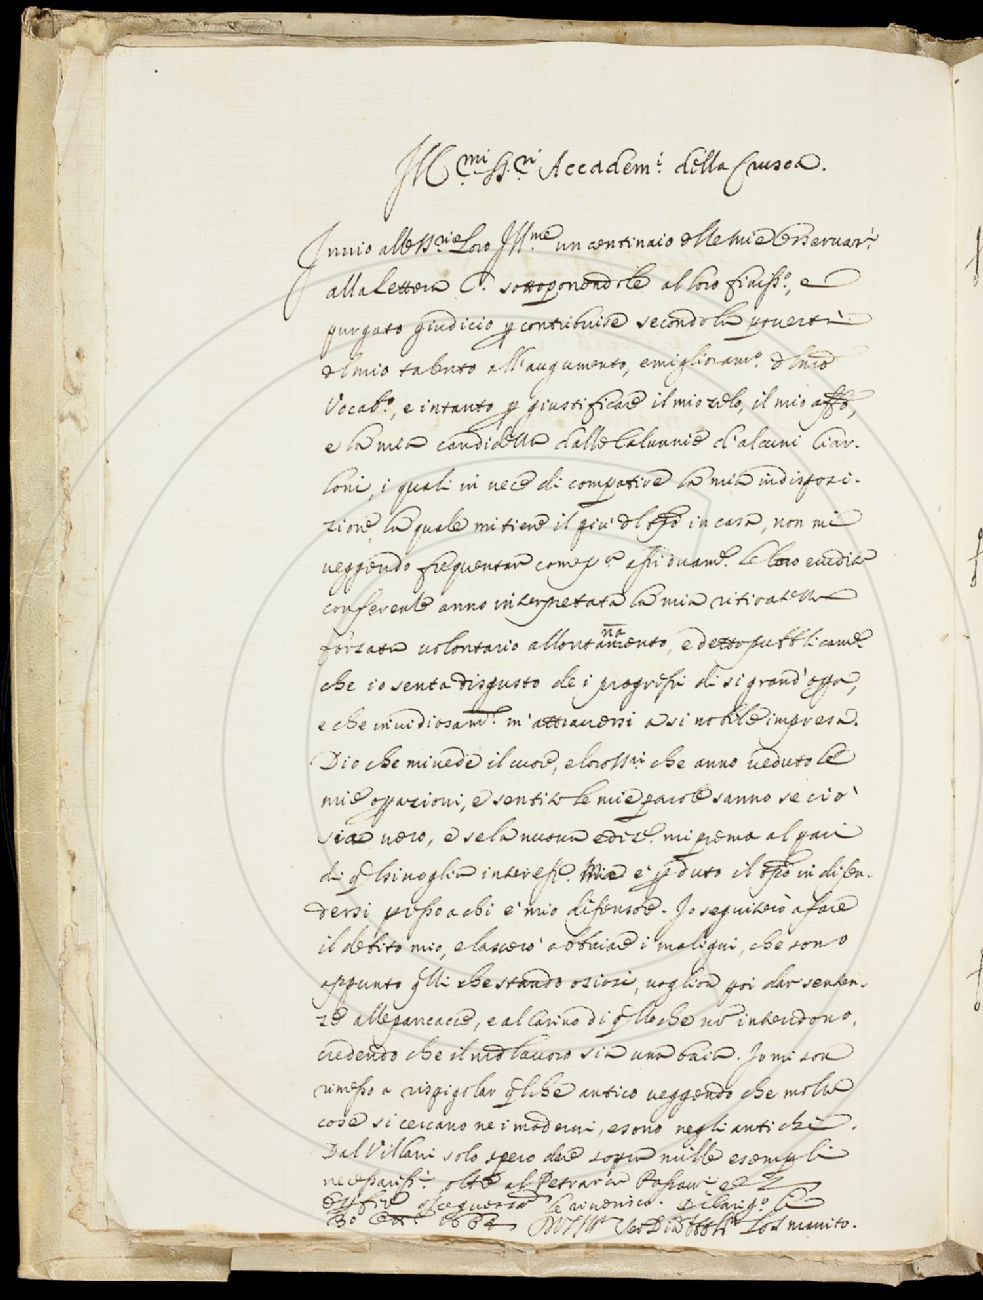 Ill.mi SS.ri Accadem.i della Crusca.
Inuio alle SS.rie Loro Ill.me un centinaio delle mie osseruaz.i
alla Lettera C. sottoponendole al loro finiss.o, e
purgato giudicio p contribuire secondo la pouertà
del mio talento all'augumento, e miglioram.o del nro
Vocab.o, e intanto p giustificare il mio zelo, il mio affto,
e la mia candidezza dalle calunnie d'alcuni ciar-
loni, i quali in uece di compatire la mia indisposi-
zione, la quale mi tiene il piu del tpo in casa, non mi
ueggendo frequentar come p assiduam.e le loro erudite
conferenze anno interpretata la mia ritiratezza
forzata uolontario allontanamento, e detto pubblicam.e
che io senta disgusto de i progressi di sì grand'opra,
e che inuidiosam.e m'attrauersi a sì nobile impresa.
Dio che mi uede il cuore, e loro SS.ri che anno ueduto le
mie oppazioni, e sentito le mie parole sanno se ciò
sia uero, e se la nuoua ediz.e mi prema al pari
di qlsiuoglia interess.e Ma è pduto il tpo in difen-
dersi presso a chi è mio difensore. Io seguiterò a fare
il debito mio, e lascerò abbaiare i maligni, che sono
appunto qlli che stando oziosi, uoglion poi dar senten-
ze alle pancacce, e al Casino di qllo che nō intendono,
credendo che il nro lauoro sia una baia. Io mi son
rimesso a rispigolar qlche antico ueggendo che molte
cose si cercano ne i moderni, e sono negli antichi.
Dal Villani solo spero dare sopra mille esempli
necessariss.i oltre al Petrarca Passau.i e
ossequoso le riuerisco. Di
30 1664 Lo Smunito.